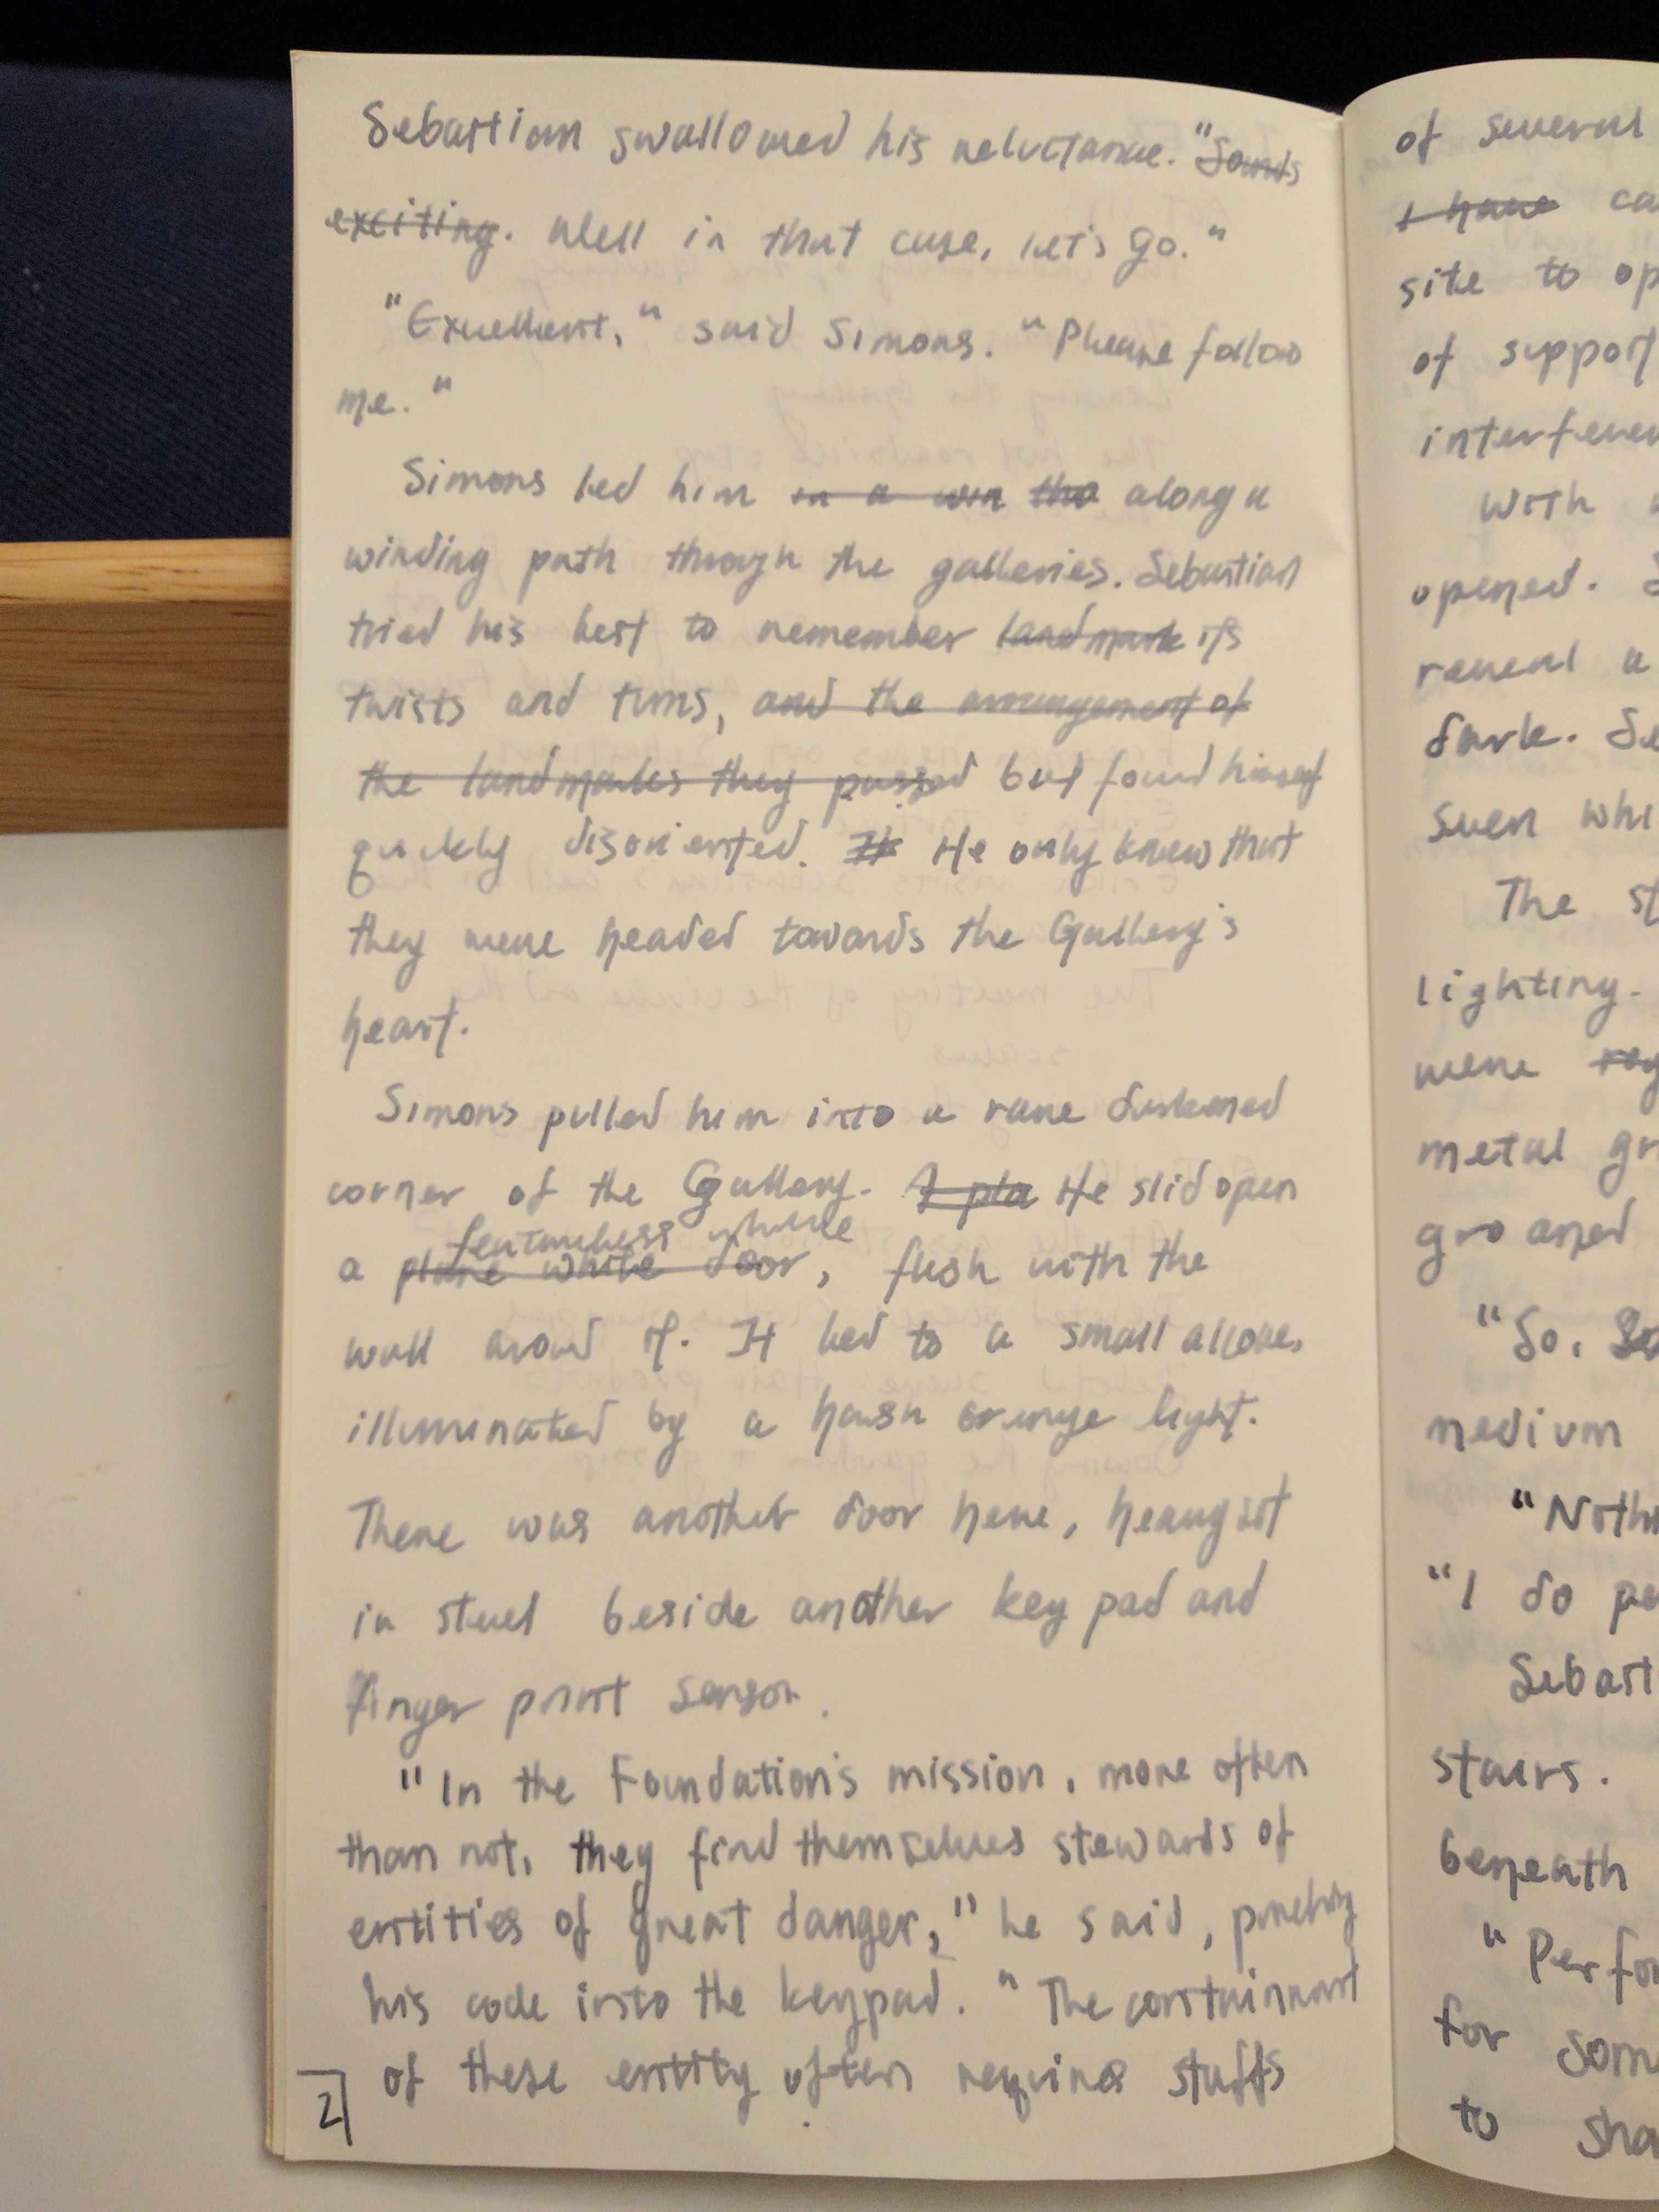 Sebastian swallowed his reluctance. "Sounds
exciting. Well in that case, let's go."
"Excellent," said Simons. "Please follow
me."
Simons led him in a win tho along a
winding path through the galleries. Sebastian
tried his best to remember landmark its
twists and turns, and the arrangement of
the landmarks they passed but found himself
quickly disoriented. It He only knew that
they were headed towards the Gallery's
heart.
Simons pulled him into a rare darkened
corner of the Gallery. A pla He slid open
featureless white
a plane white door, flush with the
wall around it. It led to a small alcove,
illuminated by a harsh orange light.
There was another door here, heavy set
in steel beside another key pad and
finger print sensor.
"In the Foundation's mission, more often
than not, they find themselves stewards of
entities of great danger," he said, punching
his code into the keypad. "The containment
of these entity often requires staffs
2
of several
I have ca
site to op
of support
interferen
With
opened. S
reveal a
dark. Se
even whi
The st
lighting.
were
metal gr
groaned
"So,
medium
"Noth
"I do pe
Sebast
stairs.
beneath
"Perfo
for som
to sha